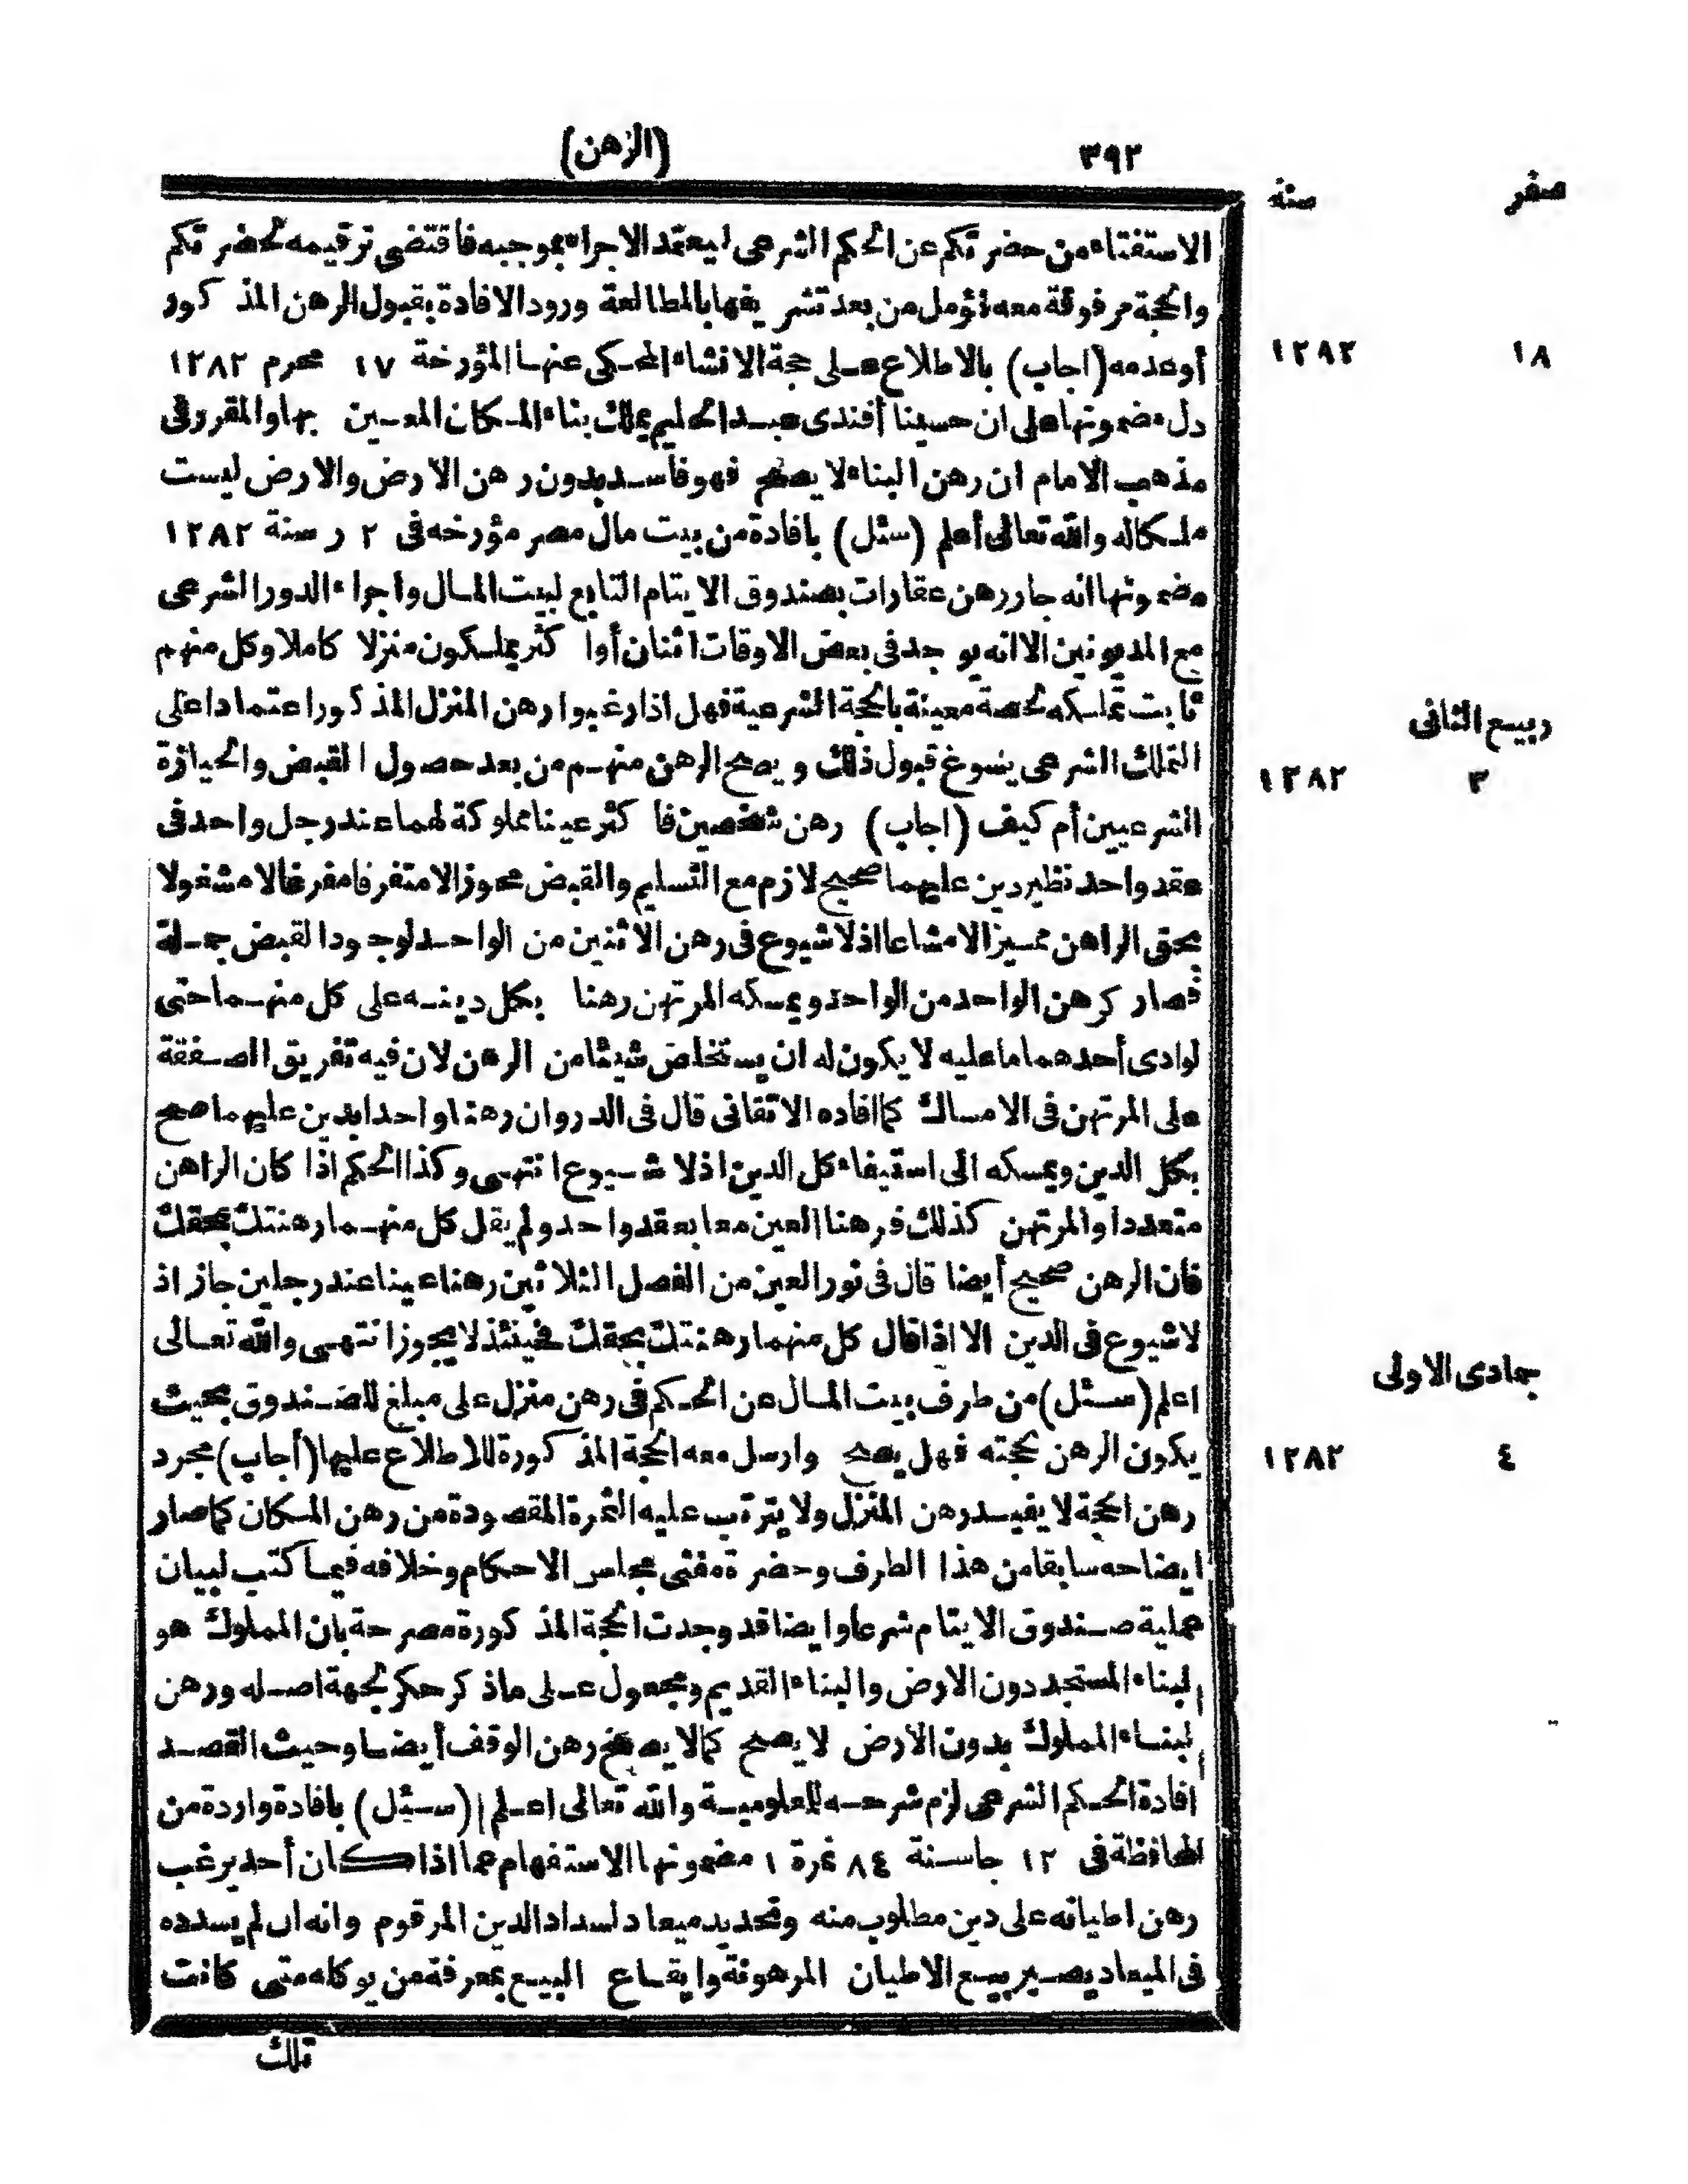 ٣٩٢ (الرهن)
صفر سنة
الاستفتاء من حضرتكم عن الحكم الشرعى ليعتمد الاجراء بموجبه فاقتضى ترقيمه لحضرتكم
والحجة مرفوقة معه نؤمل من بعد تشريفها بالمطالعة ورود الافادة بقبول الرهن المذكور
١٨ ١٢٨٢
أوعدمه (اجاب) بالاطلاع على حجة الانشاء المحكى عنها المؤرخة ١٧ محرم ١٢٨٢
دل مضمونها على ان حسينا أفندى عبد الحليم يملك بناء المكان المعين بها والمقرر فى
مذهب الامام ان رهن البناء لا يصح فهو فاسد بدون رهن الارض والارض ليست
ملكا له والله تعالى أعلم (سئل) بافادة من بيت مال مصر مؤرخه فى ٢ ر سنة ١٢٨٢
مضمونها انه جار رهن عقارات بصندوق الايتام التابع لبيت المال واجراء الدور الشرعى
مع المديونين الا انه يوجد فى بعض الاوقات اثنان أو اكثر يملكون منزلا كاملا وكل منهم
ربيع الثانى
ثابت تملكه لحصة معينة بالحجة الشرعية فهل اذا رغبوا رهن المنزل المذكور اعتمادا على
٣ ١٢٨٢
التملك الشرعى يسوغ قبول ذلك ويصح الرهن منهم من بعد حصول القبض والحيازة
الشرعيين أم كيف (اجاب) رهن شخصين فاكثر عينا مملوكة لهما عند رجل واحد فى
عقد واحد نظير دين عليهما صحيح لازم مع التسليم والقبض محوزا لا متفرقا مفرغا لا مشغولا
بحق الراهن مميزا لا مشاعا اذ لا شيوع فى رهن الاثنين من الواحد لوجود القبض جملة
فصار كرهن الواحد من الواحد ويمسكه المرتهن رهنا بكل دينه على كل منهما حتى
لو ادى أحدهما ما عليه لا يكون له ان يستخلص شيئا من الرهن لان فيه تفريق الصفقة
على المرتهن فى الامساك كما افاده الاتقانى قال فى الدر وان رهنا واحدا بدين عليهما صح
بكل الدين ويمسكه الى استيفاء كل الدين اذ لا شيوع انتهى وكذا الحكم اذا كان الراهن
متعددا والمرتهن كذلك فرهنا العين معا بعقد واحد ولم يقل كل منهما رهنتك بحقك
فان الرهن صحيح أيضا قال فى نور العين من الفصل الثلاثين رهنا عينا عند رجلين جاز اذ
لا شيوع فى الدين الا اذا قال كل منهما رهنتك بحقك فحينئذ لا يجوز انتهى والله تعالى
جمادى الاولى
اعلم (سئل) من طرف بيت المال عن الحكم فى رهن منزل على مبلغ للصندوق بحيث
٤ ١٢٨٢
يكون الرهن لحجته فهل يصح وارسل معه الحجة المذكورة للاطلاع عليها (أجاب) مجرد
رهن الحجة لا يفيد رهن المنزل ولا يترتب عليه الثمرة المقصودة من رهن المكان كما صار
ايضاحه سابقا من هذا الطرف وحضرة مفتى مجلس الاحكام وخلافه فيما كتب لبيان
عملية صندوق الايتام شرعا وايضا قد وجدت الحجة المذكورة مصرحة بان المملوك هو
البناء المستجد دون الارض والبناء القديم ومجعول على ماذكر حكر لجهة اصله ورهن
البناء المملوك بدون الارض لا يصح كما لا يصح رهن الوقف أيضا وحيث القصد
افادة الحكم الشرعى لزم شرحه للمعلومية والله تعالى اعلم (سئل) بافادة واردة من
المحافظة فى ١٢ جا سنة ٨٤ نمرة ١ مضمونها الاستفهام عما اذا كان أحد يرغب
رهن اطيانه على دين مطلوب منه وتحديد ميعاد لسداد الدين المرقوم وانه ان لم يسدده
فى الميعاد يصير بيع الاطيان المرهونة وايقاع البيع بمعرفة من يوكله متى كانت
تلك